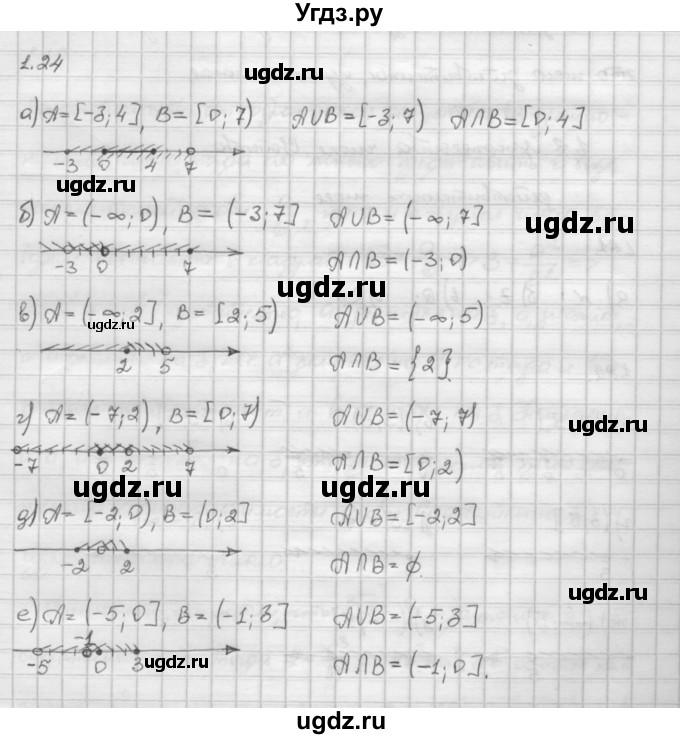 Угдз.ру
1.24
а) A = [-3; 4], B = [0; 7) A∪B = [-3; 7) A∩B = [0; 4]
-3 0 4 7
б) A = (-∞; 0), B = (-3; 7] A∪B = (-∞; 7]
-3 0 7 A∩B = (-3; 0)
в) A = (-∞; 2], B = [2; 5) A∪B = (-∞; 5)
2 5 A∩B = {2}.
г) A = (-7; 2), B = [0; 7) A∪B = (-7; 7)
-7 0 2 7 A∩B = [0; 2)
д) A = [-2; 0), B = (0; 2] A∪B = [-2; 2]
-2 2 A∩B = ∅.
е) A = (-5; 0], B = (-1; 3] A∪B = (-5; 3]
-5 -1 0 3 A∩B = (-1; 0].
ugdz.ru
ugdz.ru
ugdz.ru
ugdz.ru
ugdz.ru
ugdz.ru
ugdz.ru
ugdz.ru
ugdz.ru
ugdz.ru
ugdz.ru
ugdz.ru